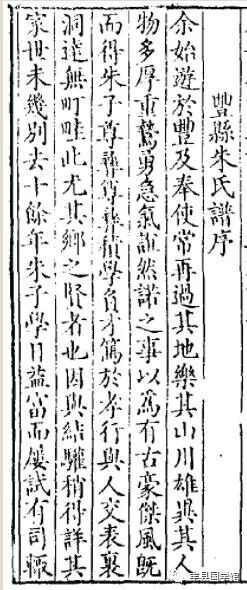 豐縣朱氏譜序
余始遊於豐及奉使常再過其地樂其山川雄畀其人
物多厚重鷙勇急氣誼然諾之事以為有古豪傑風既
而得朱子尊彞尊彞積學負才篤於孝行與人交表裏
洞達無町畦此尤其鄉之賢者也因與結驩稍得詳其
家世未幾別去十餘年朱子學日益富而屢試有司輒